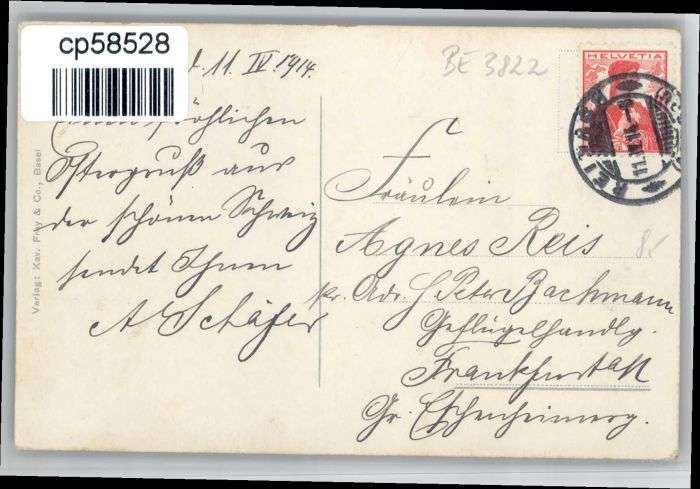 cp58528
11. IV. 1914.
fröhlichen
Ostergruß aus
der schönen Schweiz
sendet Ihnen
A Schäfer
Verlag: Xav. Frey & Co., Basel
BE 3822
HELVETIA
REINACH
11.IV.14
Fräulein
Agnes Reis
pr. Adr. H Peter Bachmann
Geflügelhandlg.
Frankfurt a/M
Gr. Eschenheimerg.
8.-